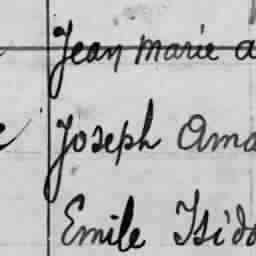 Jean Marie a
Joseph Ama
Emile Isido